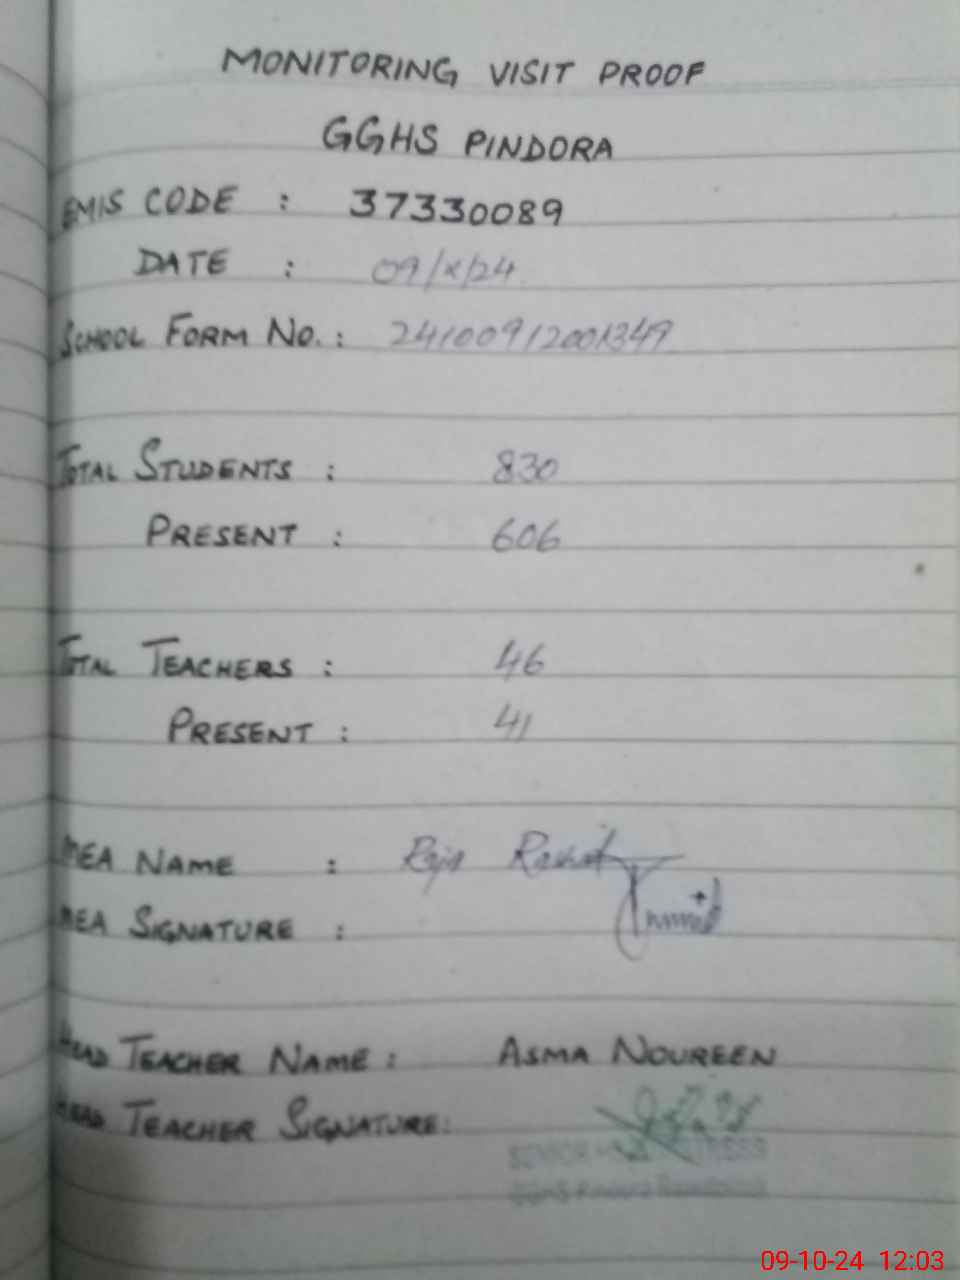 MONITORING VISIT PROOF
GGHS PINDORA
EMIS CODE : 37330089
DATE : 09/X/24
SCHOOL FORM NO. : 24100912001349
TOTAL STUDENTS : 830
PRESENT : 606
TOTAL TEACHERS : 46
PRESENT : 41
MEA NAME : Raja Rashid
MEA SIGNATURE :
HEAD TEACHER NAME : ASMA NOUREEN
HEAD TEACHER SIGNATURE:
SENIOR
GGHS Pindora Rawalpindi
09-10-24 12:03